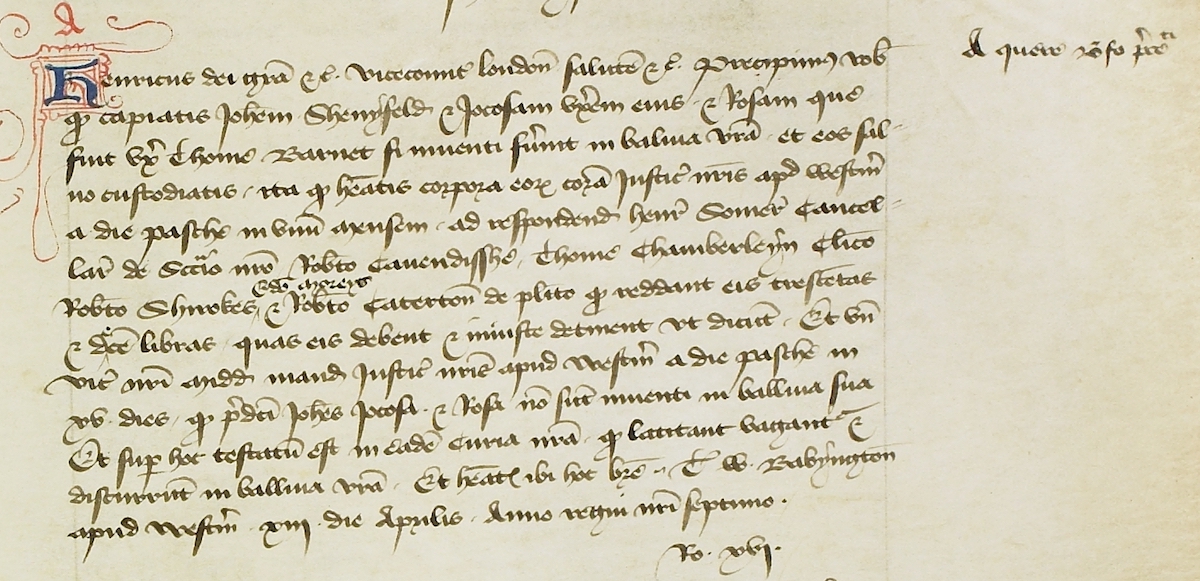 A
Henricus dei gra̅ &c̅. vicecomit̅ london̅ salute̅ &c̅. Precipim9 vob̅
qd̅ capiatis Joh̅em Shenyfeld & Jocosam vx̅em eius & Rosam que
fuit vx̅ Thome Barnet si inuenti fu̅int in baliua vr̅a et eos sal-
uo custodiatis ita qd̅ he̅atis corpora eor̅ cora̅ Justic̅ nr̅is apd̅ westm̅
a die pasche in vnu̅ mensem ad respondend̅ Henr̅ Somer̅ Cancel-
lar̅ de Scc̅io nr̅o Rob̅to Cauendisshe Thome Chamberleyn̅ Cl̅ico
Edo̅ Moreys
Rob̅to Shirokes & Rob̅to Caterton̅ de pl̅ito qd̅ reddant eis trescentas
& dece̅ libras quas eis debent & iniuste detinent vt dicu̅t Et vn̅
vic̅ nr̅i Midd̅ mand̅ Justic̅ nr̅is apud westm̅ a die pasche in
xv. dies qd̅ p̅dc̅i Joh̅es Jocosa & Rosa no̅ su̅t inuenti in balliua sua
Et sup̅ hoc testatu̅ est in eade̅ Curia nr̅a qd̅ latitant vagant̅ &
discurru̅t in balliua vr̅a Et he̅at̅ ibi hoc br̅e. T̅ W. Babyngton̅
apud westm̅ xiij die Aprilis Anno regni nr̅i septimo.
Ro. xvj.
A quere